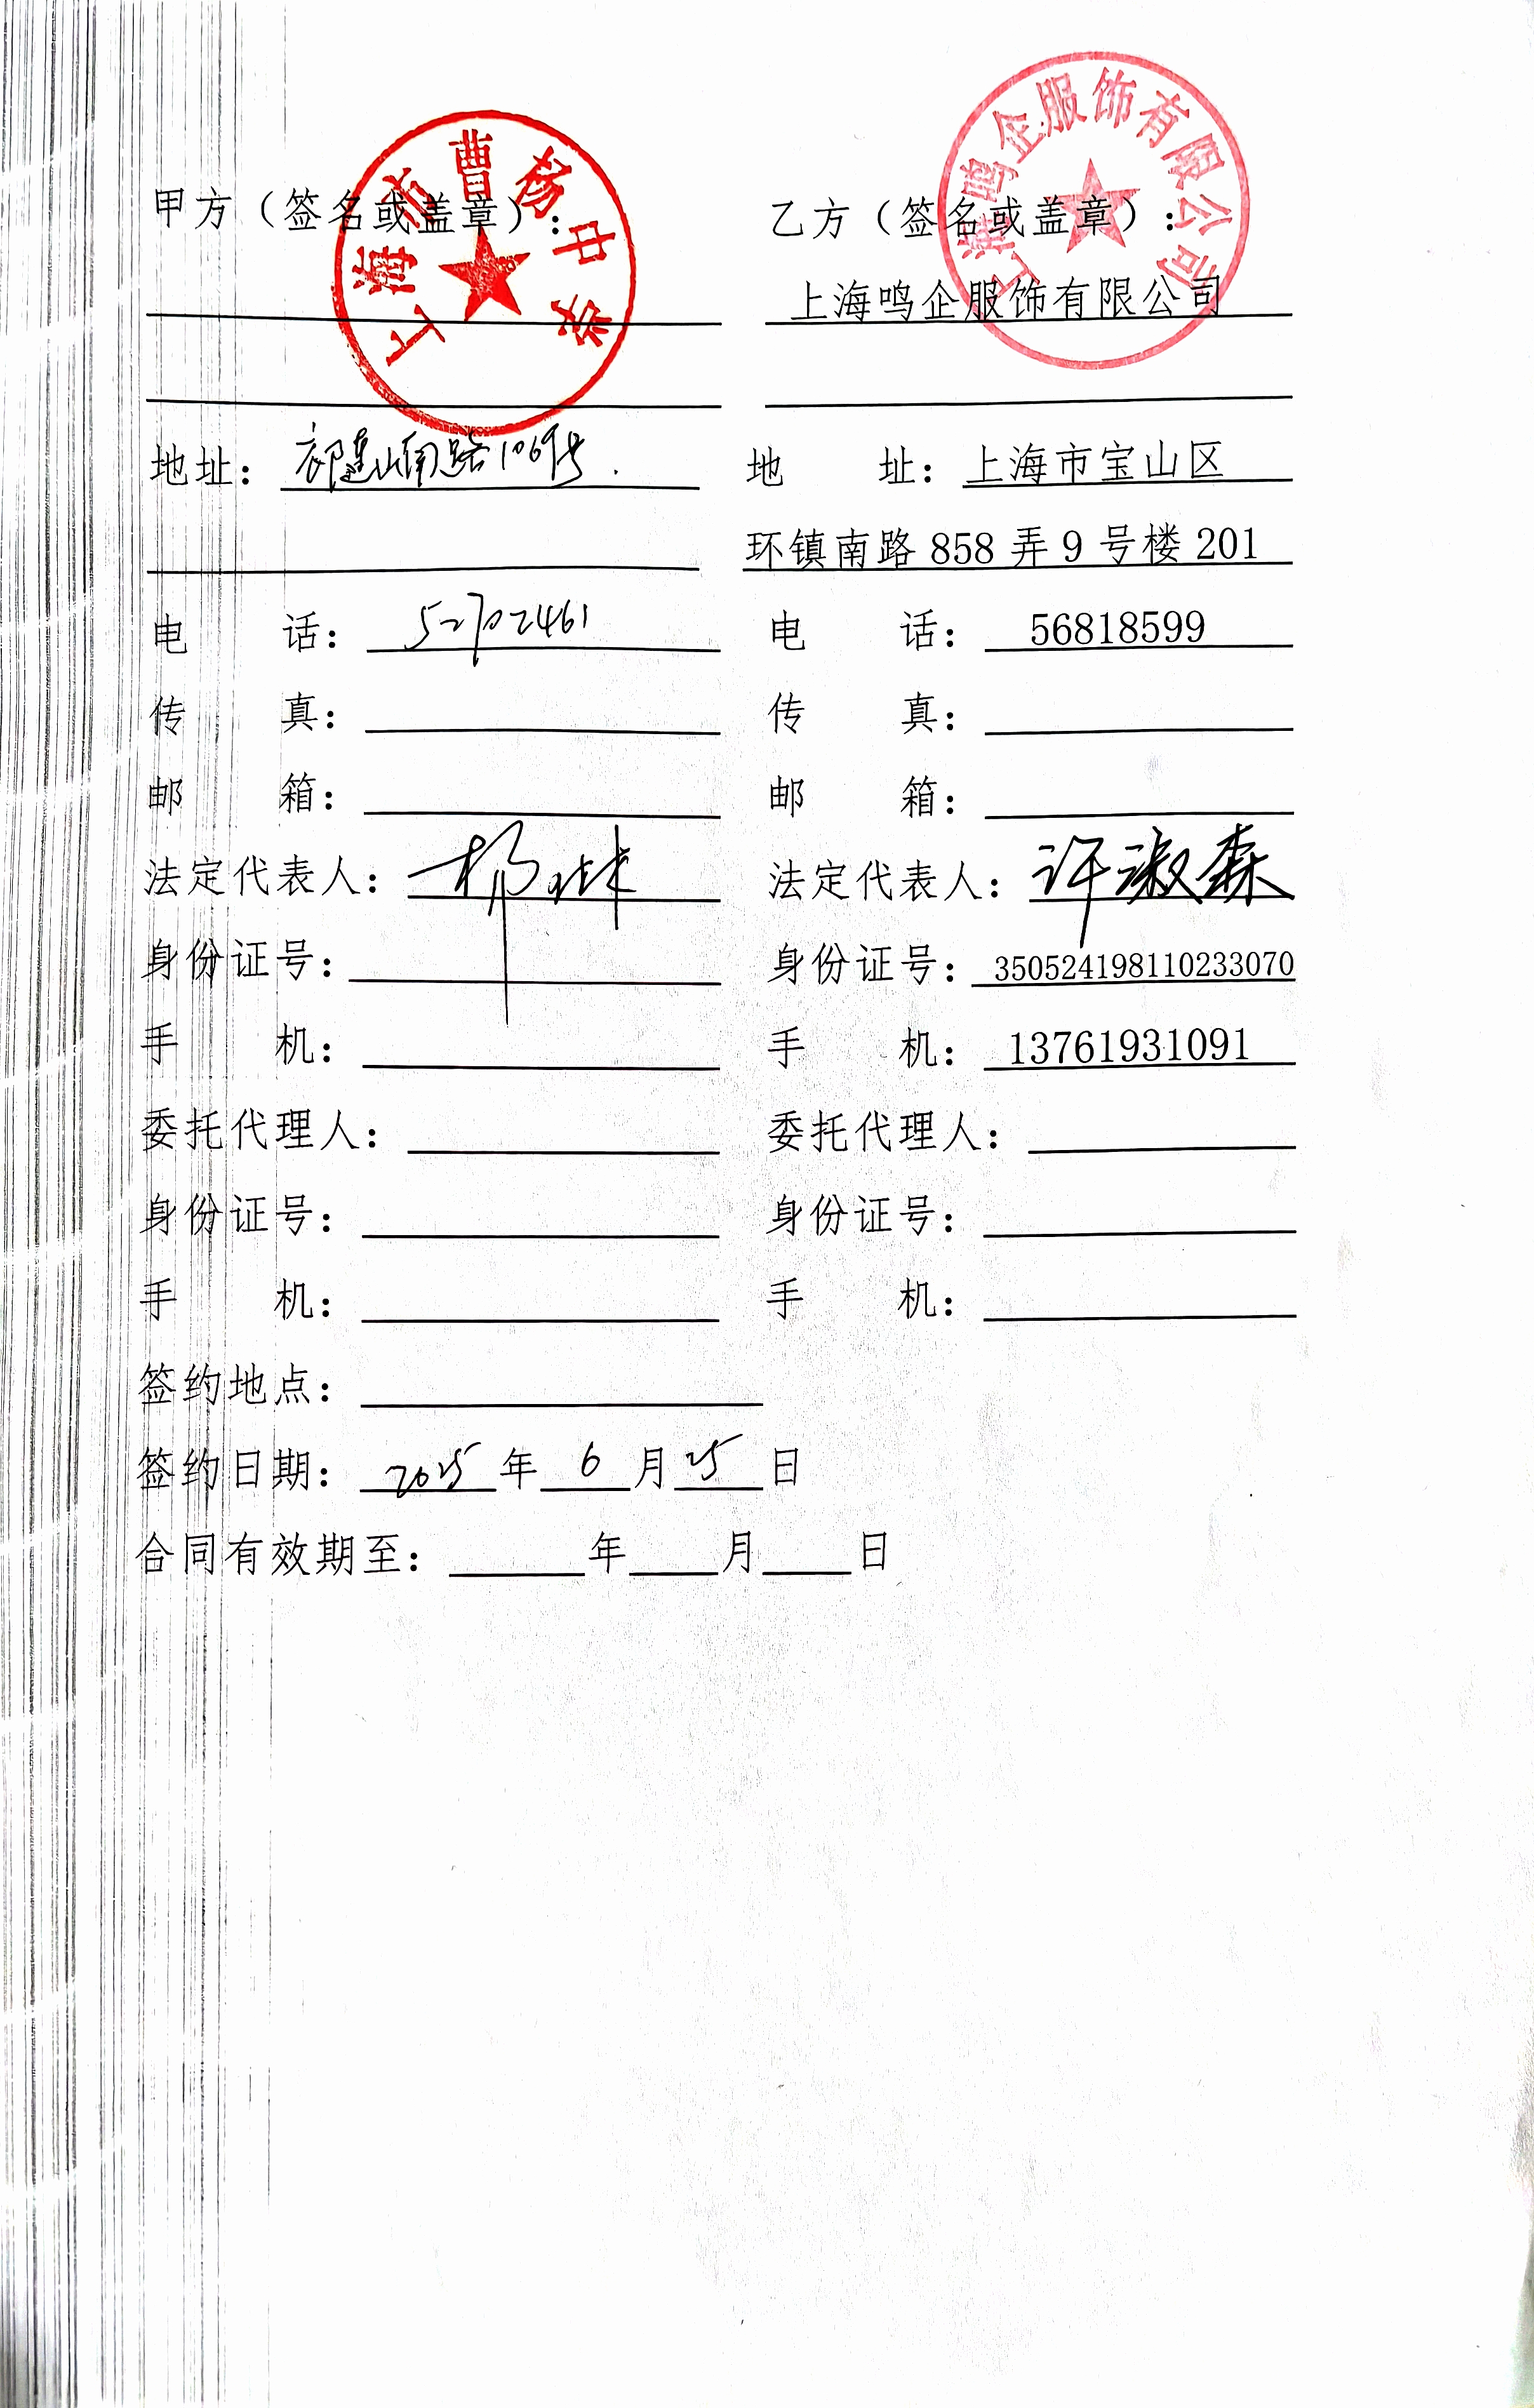 上海市曹杨中学
上海鸣企服饰有限公司
甲方（签名或盖章）： 乙方（签名或盖章）：
上海鸣企服饰有限公司
地址： 山南路106号. 地 址：上海市宝山区
环镇南路 858 弄 9 号楼 201
电 话： 52702461 电 话： 56818599
传 真： 传 真：
邮 箱： 邮 箱：
法定代表人： 杨 法定代表人：许淑森
身份证号： 身份证号：350524198110233070
手 机： 手 机：13761931091
委托代理人： 委托代理人：
身份证号： 身份证号：
手 机： 手 机：
签约地点：
签约日期： 2025 年 6 月 25 日
合同有效期至： 年 月 日